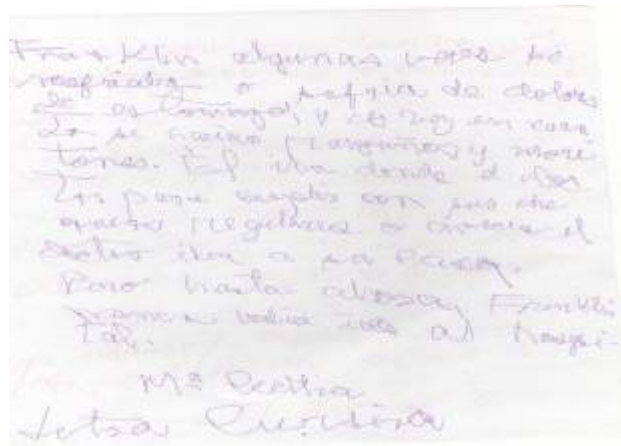 Franklin algunas veces se
resfriaba o sufría de dolores
de estómago, y de vez en cuan
do se hacía rasguños y more
tones. Él iba donde el doc
tor para cumplir con sus che
queos regulares o cuando el
doctor iba a su casa.
Pero hasta ahora, Franklin
nunca había ido al hospi-
tal.
Letra Cursiva